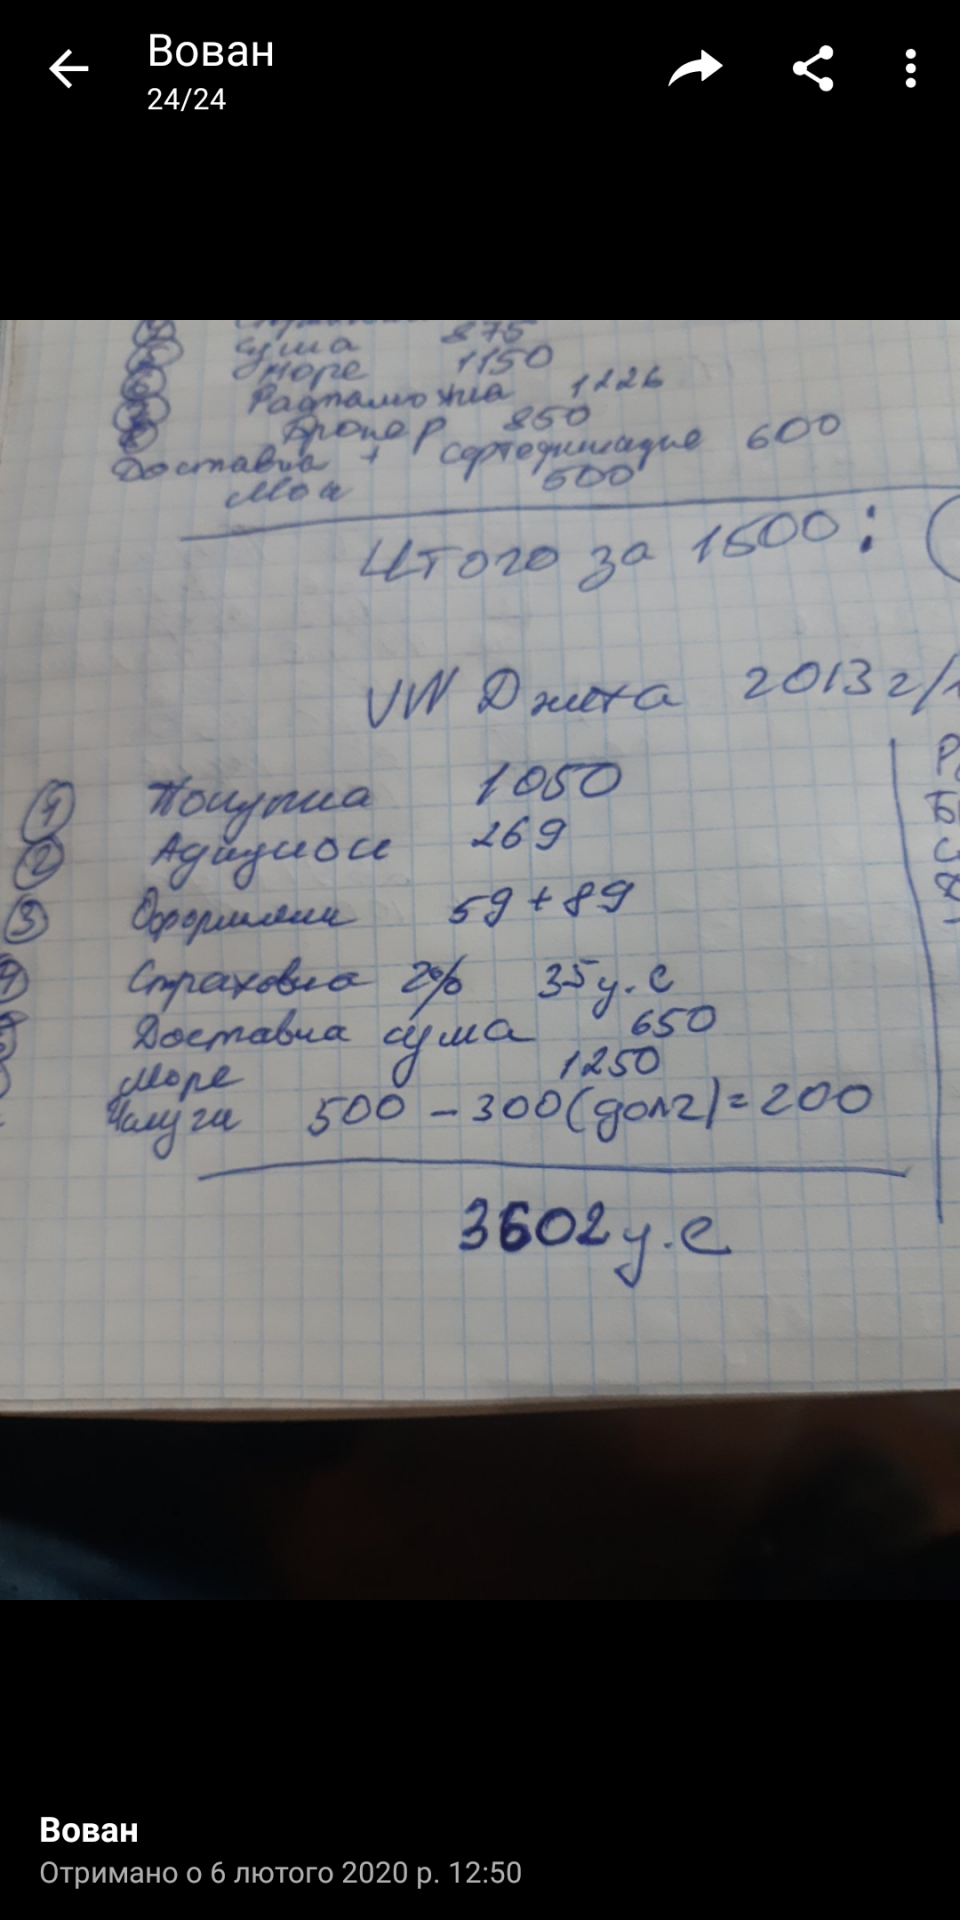 Вован
24/24
суша 875
море 1150
Растаможка 1226
Брокер 850
Доставка + сертефикацие 600
Мои 500
Итого за 1500:
VW Джета 2013г/
1 Покупка 1050
2 Аукцион 269
3 Оформлени 59+89
4 Страховка 2% 35 у.е
Доставка суша 650
Море 1250
Услуги 500 - 300 (долг) = 200
3602 у.е
Вован
Отримано о 6 лютого 2020 р. 12:50